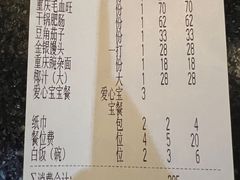 重庆毛血旺 份 1 70 70
干锅肥肠 份 1 62 62
豆角茄子 份 1 28 28
金银馒头 一打 1 28 28
重庆豌杂面 份 1 18 18
椰汁（大） 大 1 28 28
爱心宝宝餐 爱心宝 3
宝餐
纸巾 包 2 2 4
餐位费 位 4 5 20
白饭（碗） 位 3 2 6